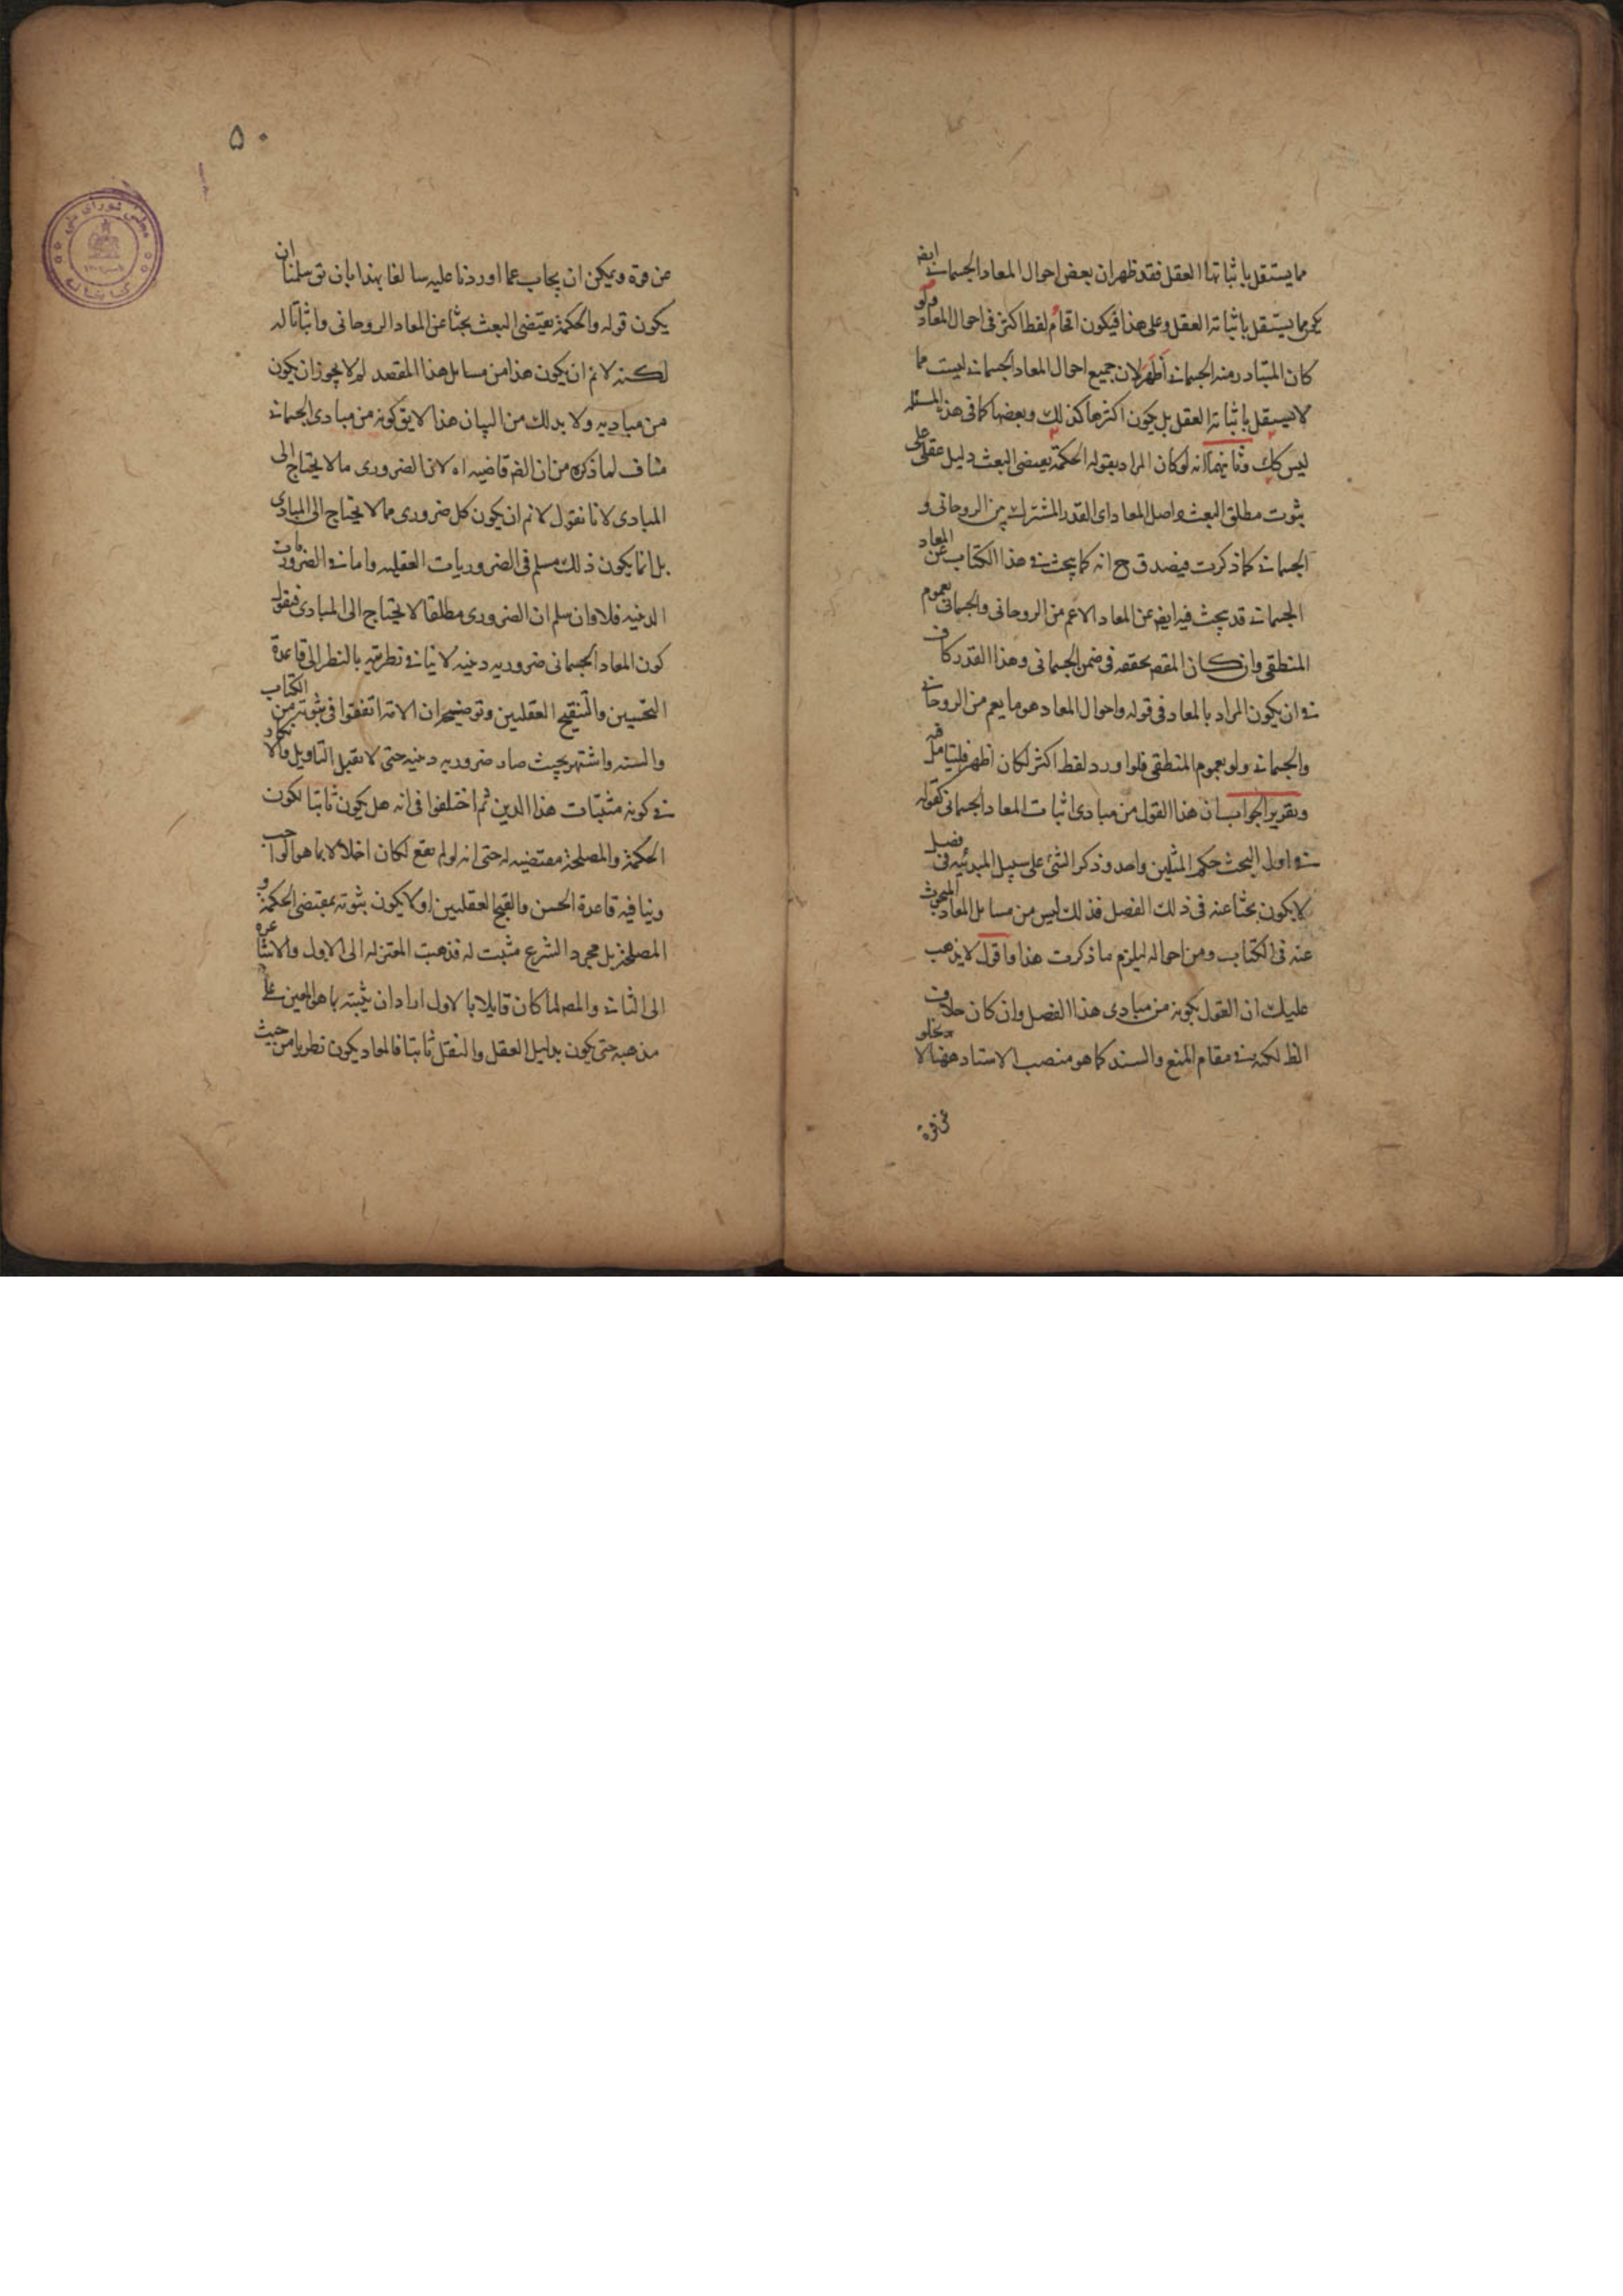 مما يستقل باثباتها العقل فقد ظهر ان بعض احوال المعاد الجسماني ايضا
يكون مما يستقل باثباته العقل وعلى هذا فيكون اقحام لفظ اكثر في احوال المعاد ولو
كان المتبادر منه الجسماني اظهر لان جميع احوال المعاد الجسماني ليست مما
لا يستقل باثباته العقل بل يكون اكثرها كذلك وبعضها كما في هذه المسئله
ليس كك وثانيهما انه لو كان المراد بقوله الحكمة تقتضى البعث دليل عقلى على
ثبوت مطلق البعث واصل المعاد اى القدر المشترك بين الروحانى و
الجسمانى كما ذكرت فيصدق ح انه كما يبحث في هذا الكتاب عن المعاد
الجسمانى قد يبحث فيه ايض عن المعاد الاعم من الروحانى والجسمانى بعموم
المنطقى وان كان المقص تحققه في ضمن الجسمانى وهذا القدر كاف
في ان يكون المراد بالمعاد في قوله واحوال المعاد هو ما يعم من الروحانى
والجسمانى ولو بعموم المنطقى فلو اورد لفظ اكثر لكان اظهر فليتامل فيه
وتقرير الجواب ان هذا القول من مبادى اثبات المعاد الجسمانى كقوله
في اول البحث حكم المثلين واحد وذكر الشئ على سبيل المبدئيه في فصل
لا يكون بحثا عنه في ذلك الفصل فذلك ليس من مسايل المعاد المبحوث
عنه في الكتاب ومن احواله ليلزم ما ذكرت هذا واقول لا يذهب
عليك ان القول بكونه من مبادى هذا الفصل وان كان خلاف
الظ لكنه في مقام المنع والسند كما هو منصب الاستاد ههنا لا يخلو
عن قوة
۵۰
عن قوة ويمكن ان يجاب عما اوردنا عليه سالفا بهذا بان يق سلمنا ان
يكون قوله والحكمة تقتضى البعث بحثا عن المعاد الروحانى واثباتا له
لكنه لا نم ان يكون هذا من مسايل هذا المقصد لم لا يجوز ان يكون
من مباديه ولا بد لك من البيان هذا لا يق كونه من مبادى الجسمانى
مناف لما ذكره من ان الض قاضيه اه لان الضرورى ما لا يحتاج الى
المبادى لانا نقول لا نم ان يكون كل ضرورى مما لا يحتاج الى المبادى
بل انما يكون ذلك مسلم في الضروريات العقليه واما في الضروريات
الدينيه فلا وان سلم ان الضرورى مطلقا لا يحتاج الى المبادى فنقول
كون المعاد الجسمانى ضروريه دينيه لا ينافى نظريته بالنظر الى قاعدة
التحسين والتقبيح العقليين وتوضيحه ان الامة اتفقوا في ثبوته من الكتاب
والسنه واشتهر بحيث صار ضروريه دينيه حتى لا تقبل التاويل والا
في كونه مثبتات هذا الدين ثم اختلفوا في انه هل يكون ثابتا لكون
الحكمة والمصلحة مقتضيه له حتى انه لو لم يقع لكان اخلالا بما هو الواجب
وينافيه قاعدة الحسن والقبح العقليين او لا يكون ثبوته بمقتضى الحكمة و
المصلحة بل مجرد الشرع مثبت له فذهبت المعتزله الى الاول والاشاعره
الى الثانى والمص لما كان قايلا بالاول اراد ان يثبته بما هو المعين على
مذهبه حتى يكون بدليل العقل والنقل ثابتا فالمعاد يكون نظريا من حيث
مجلس شورای ملی
کتابخانه